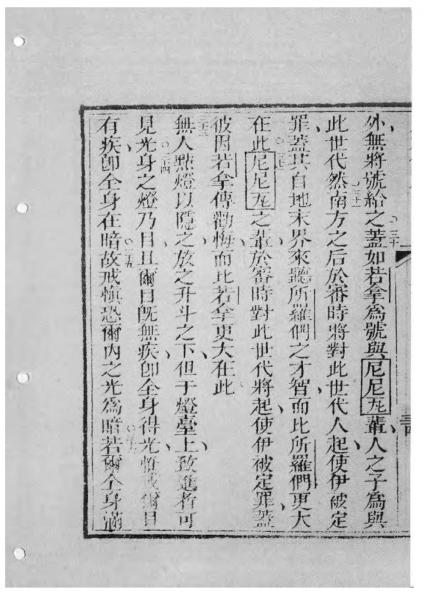 外無將號給之蓋如若拿爲號與尼尼瓦輩人之子爲與
三十
此世代然南方之后於審時將對此世代人起使伊被定
三一
罪蓋其自地末界來聽所羅們之才智而比所羅們更大
在此尼尼瓦之輩於審時對此世代將起使伊被定罪蓋
三二
彼因若拿傳勸悔而比若拿更大在此
無人點燈以隱之放之升斗之下但于燈臺上致進者可
三三
見光身之燈乃目且爾目既無疾卽全身得光惟我爾目
三四
有疾卽全身在暗故戒愼恐爾內之光爲暗若爾全身滿
三五
三六